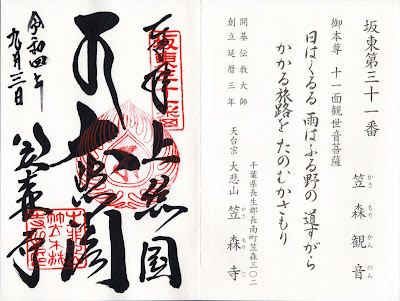 坂東第三十一番
笠森観音
かさ もり かん のん
御本尊 十一面観世音菩薩
日はくるる 雨はふる野の 道すがら
かかる旅路を たのむかさもり
開基伝教大師
創立延暦三年
千葉県長生郡長南町笠森三〇二
天台宗 大悲山 笠森寺
かさ もり じ
奉拝 上総国
大悲閣
笠森寺
令和四年
九月三日